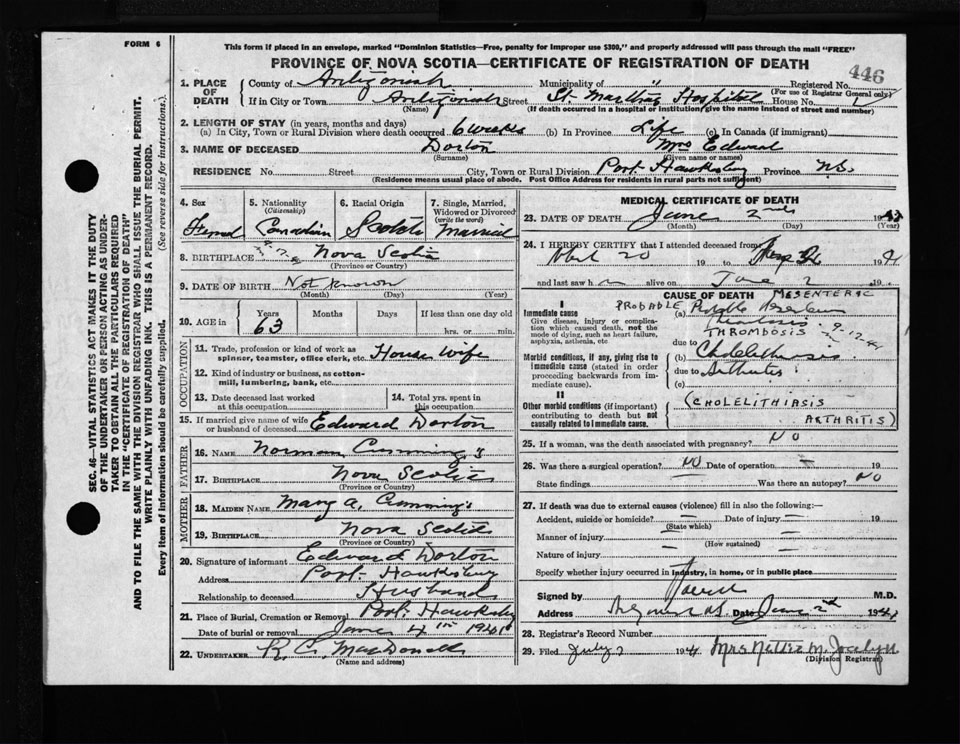 FORM 6
This form if placed in an envelope, marked "Dominion Statistics—Free, penalty for improper use $300," and properly addressed will pass through the mail "FREE"
PROVINCE OF NOVA SCOTIA—CERTIFICATE OF REGISTRATION OF DEATH
446
1. PLACE OF DEATH
County of Antigonish Municipality of " Registered No.
(For use of Registrar General only)
If in City or Town Antigonish Street St. Marthas Hospital House No.
(Name) (If death occurred in a hospital or institution, give the name instead of street and number)
2. LENGTH OF STAY (in years, months and days)
(a) In City, Town or Rural Division where death occurred 6 weeks (b) In Province Life (c) In Canada (if immigrant)
3. NAME OF DECEASED Dorton Mrs Edward
(Surname) (Given name or names)
RESIDENCE No. Street City, Town or Rural Division Port Hawksbury Province N.S.
(Residence means usual place of abode. Post Office Address for residents in rural parts not sufficient)
4. Sex
5. Nationality (Citizenship)
6. Racial Origin
7. Single, Married, Widowed or Divorced (write the word)
Canadian Scotch Married
8. BIRTHPLACE Nova Scotia
(Province or Country)
9. DATE OF BIRTH Not known
(Month) (Day) (Year)
10. AGE in Years Months Days If less than one day old
63 hrs. or min.
OCCUPATION
11. Trade, profession or kind of work as spinner, teamster, office clerk, etc. House wife
12. Kind of industry or business, as cotton-mill, lumbering, bank, etc.
13. Date deceased last worked at this occupation
14. Total yrs. spent in this occupation
15. If married give name of wife or husband of deceased Edward Dorton
FATHER
16. NAME Norman Cummings
17. BIRTHPLACE Nova Scotia
(Province or Country)
MOTHER
18. MAIDEN NAME Mary A. Cummings
19. BIRTHPLACE Nova Scotia
(Province or Country)
20. Signature of informant Edward Dorton
Address Port Hawksbury
Relationship to deceased Husband
21. Place of Burial, Cremation or Removal Port Hawksby
Date of burial or removal June 4th 1941
22. UNDERTAKER R. C. MacDonald
(Name and address)
MEDICAL CERTIFICATE OF DEATH
23. DATE OF DEATH June 2nd 1941
(Month) (Day) (Year)
24. I HEREBY CERTIFY that I attended deceased from
20 19 to 194
and last saw h alive on June 2 19
CAUSE OF DEATH
I
Immediate cause
Give disease, injury or complication which caused death, not the mode of dying, such as heart failure, asphyxia, asthenia, etc
PROBABLE MESENTERIC
(a) Probable
THROMBOSIS
due to
Morbid conditions, if any, giving rise to immediate cause (stated in order proceeding backwards from immediate cause).
(b)
due to Arthritis
(c)
II
Other morbid conditions (if important) contributing to death but not causally related to immediate cause.
(CHOLELITHIASIS
ARTHRITIS)
25. If a woman, was the death associated with pregnancy? NO
26. Was there a surgical operation? NO Date of operation — 19
State findings Was there an autopsy? NO
27. If death was due to external causes (violence) fill in also the following:—
Accident, suicide or homicide? — Date of injury — 19
(State which)
Manner of injury — —
(How sustained)
Nature of injury —
Specify whether injury occurred in industry, in home, or in public place
Signed by M.D.
Address Date June 2nd 1941
28. Registrar's Record Number
29. Filed July 2 1941 Mrs Nellie M. Jocelyn
(Division Registrar)
SEC. 46—VITAL STATISTICS ACT MAKES IT THE DUTY
OF THE UNDERTAKER OR PERSON ACTING AS UNDER-
TAKER TO OBTAIN ALL THE PARTICULARS REQUIRED
IN THE "CERTIFICATE OF REGISTRATION OF DEATH"
AND TO FILE THE SAME WITH THE DIVISION REGISTRAR WHO SHALL ISSUE THE BURIAL PERMIT.
WRITE PLAINLY WITH UNFADING INK. THIS IS A PERMANENT RECORD.
Every item of information should be carefully supplied. (See reverse side for instructions.)